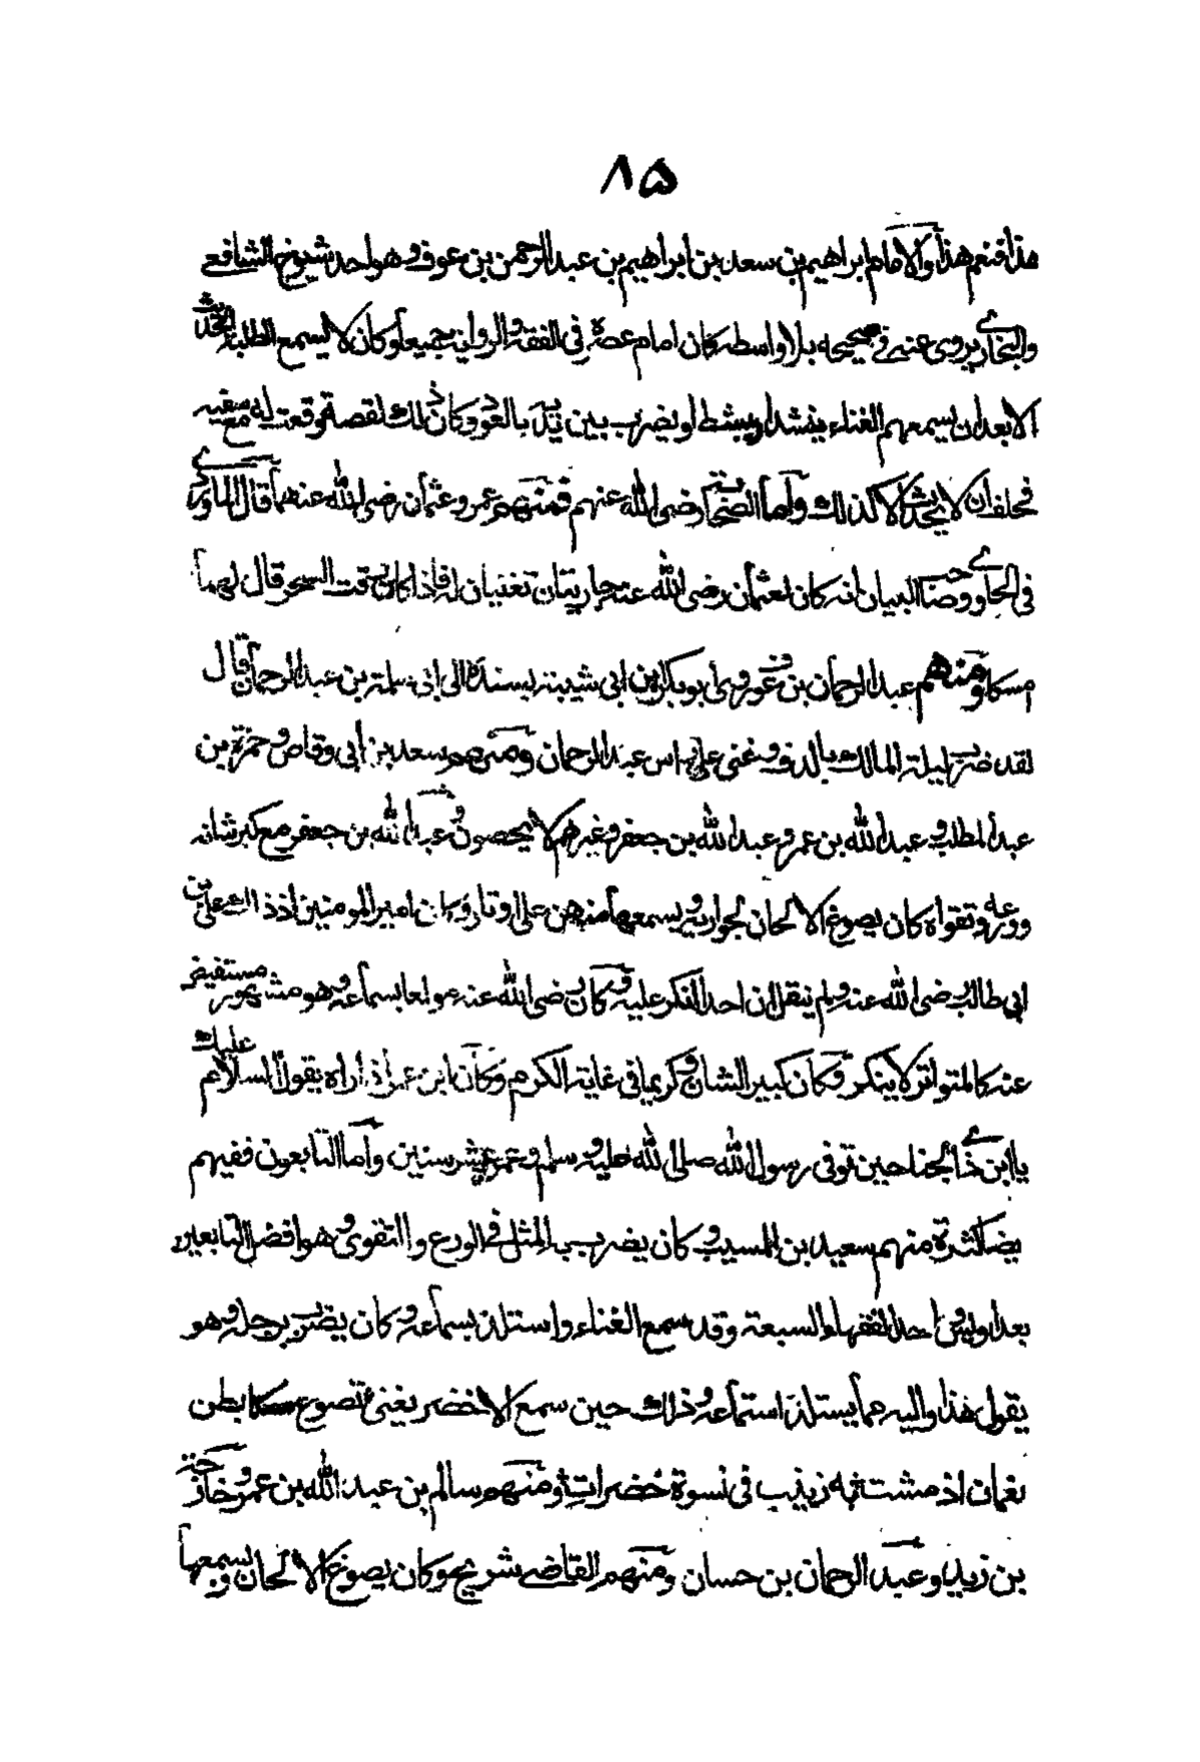 ٨٥
هذا فنعم هذا والامام ابراهيم بن سعد بن ابراهيم بن عبد الرحمن بن عوف وهو احد شيوخ الشافعي
والبخاري يروى عنه في صحيحه بلا واسطه كان امام عصره في الفقه والرواية جميعا وكان لا يسمع الطلبة الحديث
الا بعد ان يسمعهم الغناء ينشد او يبسط او يضرب بين يديه بالعود وكان ذلك لقصة وقعت له مع سفيه
فحلف ان لا يحدث الا كذلك واما الصحابة رضى الله عنهم فمنهم عمر وعثمان رضى الله عنهما قال الماوردي
في الحاوي وصاحب البيان انه كان لعثمان رضى الله عنه جاريتان تغنيان له فاذا كان وقت السحر قال لهما
امسكا ومنهم عبد الرحمان بن عوف روى ابو بكر بن ابى شيبة بسنده الى ابى سلمة بن عبد الرحمان قال
لقد ضرب ليلة المالك بالدف وغنى على راس عبد الرحمان ومنهم سعد بن ابى وقاص وحمزة بن
عبد المطلب وعبد الله بن عمر وعبد الله بن جعفر وغيرهم لا يحصون وعبد الله بن جعفر مع كبر شانه
وورعه وتقواه كان يصوغ الالحان لجواريه ويسمعها منهن على اوتاره وكان امير المومنين اذ ذاك على بن
ابى طالب رضى الله عنه ولم ينقل ان احدا انكر عليه وكان رضى الله عنه مولعا بسماعه وهو مشهور مستفيض
عنه كالمتواتر لا ينكر وكان كبير الشان وكريما في غاية الكرم وكان ابن عمر اذا راه يقول السلام عليك
يا ابن ذي الجناحين توفى رسول الله صلى الله عليه وسلم وعمره عشر سنين واما التابعون ففيهم
ايضا كثرة منهم سعيد بن المسيب وكان يضرب به المثل في الورع والتقوى وهو افضل التابعين
بعد اويس واحد الفقهاء السبعة وقد سمع الغناء واستلذ بسماعه وكان يضرب برجله وهو
يقول هذا والله مما يستلذ استماعه وذلك حين سمع الاخضر يغنى تضوع مسكا بطن
نعمان اذ مشت به زينب في نسوة خضرات ومنهم سالم بن عبد الله بن عمر وخارجة
بن زيد وعبد الرحمان بن حسان ومنهم القاضي شريح وكان يصوغ الالحان ويسمعها